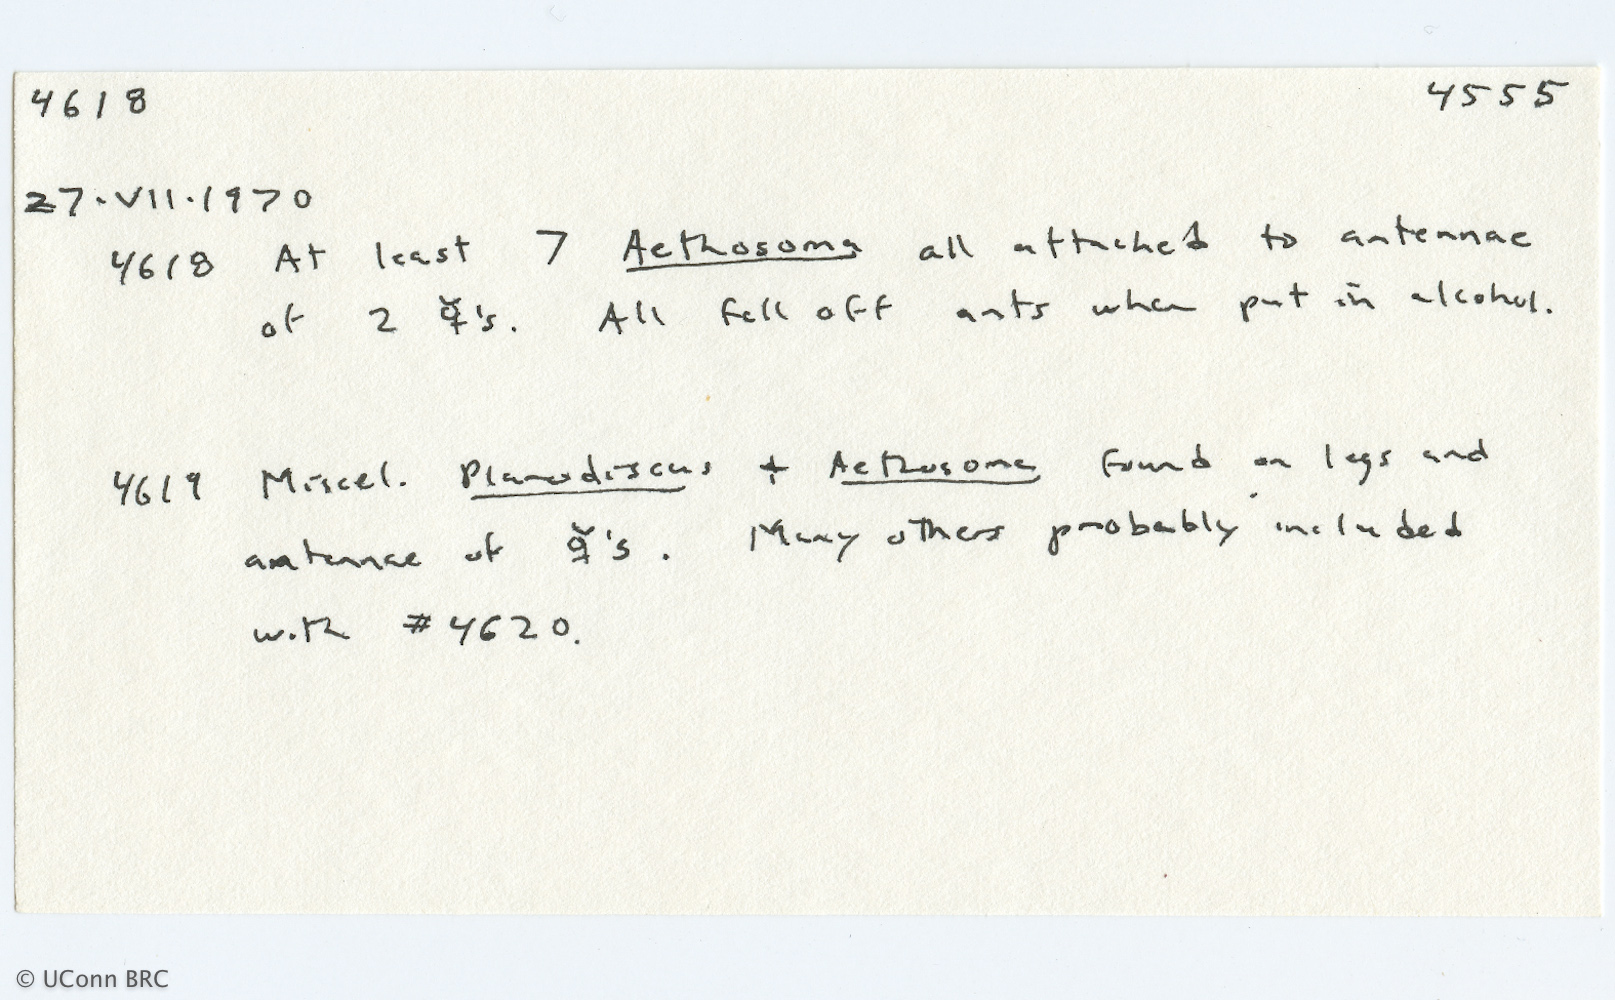 4618 4555
27.VII.1970
4618 At least 7 Aethosoma all attached to antennae
of 2 ☿'s. All fell off ants when put in alcohol.
4619 Miscel. Planodiscus + Aethosoma found on legs and
antennae of ☿'s. Many others probably included
with #4620.
© UConn BRC